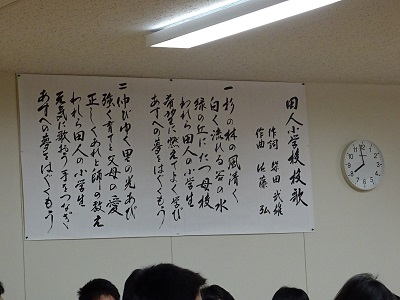 田人小学校校歌
作詞 柴田武雄
作曲 佐藤弘
一 杉の林の風清く
白く流れる谷の水
緑の丘にたつ母校
われら田人の小学生
希望に燃えてよく学び
あすへの夢をはぐくもう
二 伸びゆく里の光あび
強く育てと父母の愛
正しくあれと師の教え
われら田人の小学生
元気に歌おう手をつなぎ
あすへの夢をはぐくもう